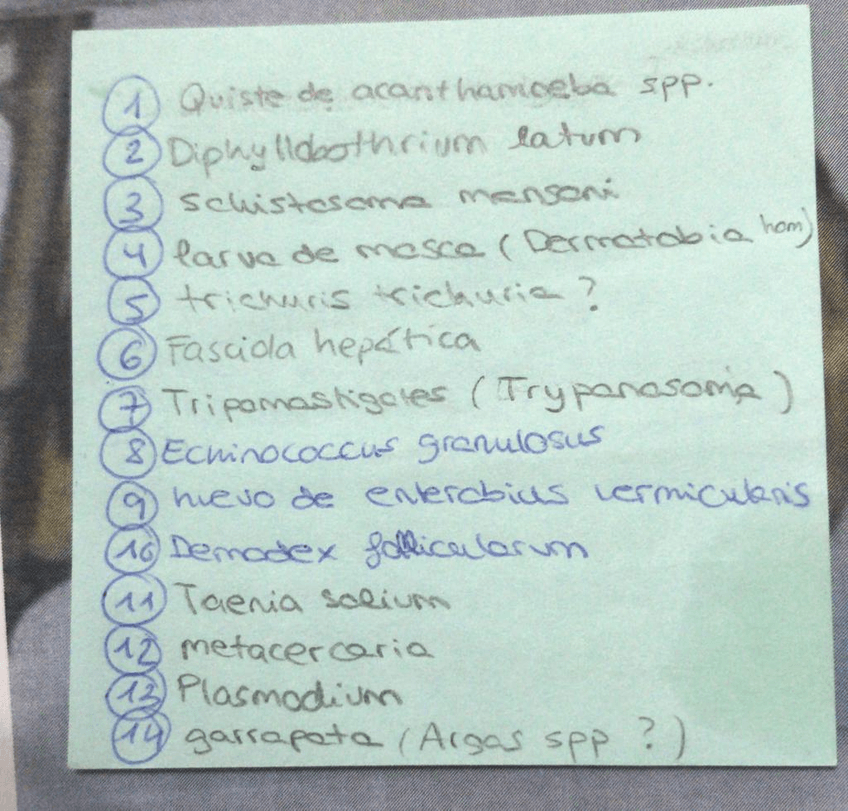 1 Quiste de acanthamoeba spp.
2 Diphyllobothrium latum
3 schistosoma mansoni
4 larva de mosca (Dermatobia hom)
5 trichuris trichuria ?
6 Fasciola hepática
7 Tripomastigotes (Trypanosoma)
8 Echinococcus granulosus
9 huevo de enterobius vermicularis
10 Demodex folliculorum
11 Taenia solium
12 metacercaria
13 Plasmodium
14 garrapata (Argas spp ?)